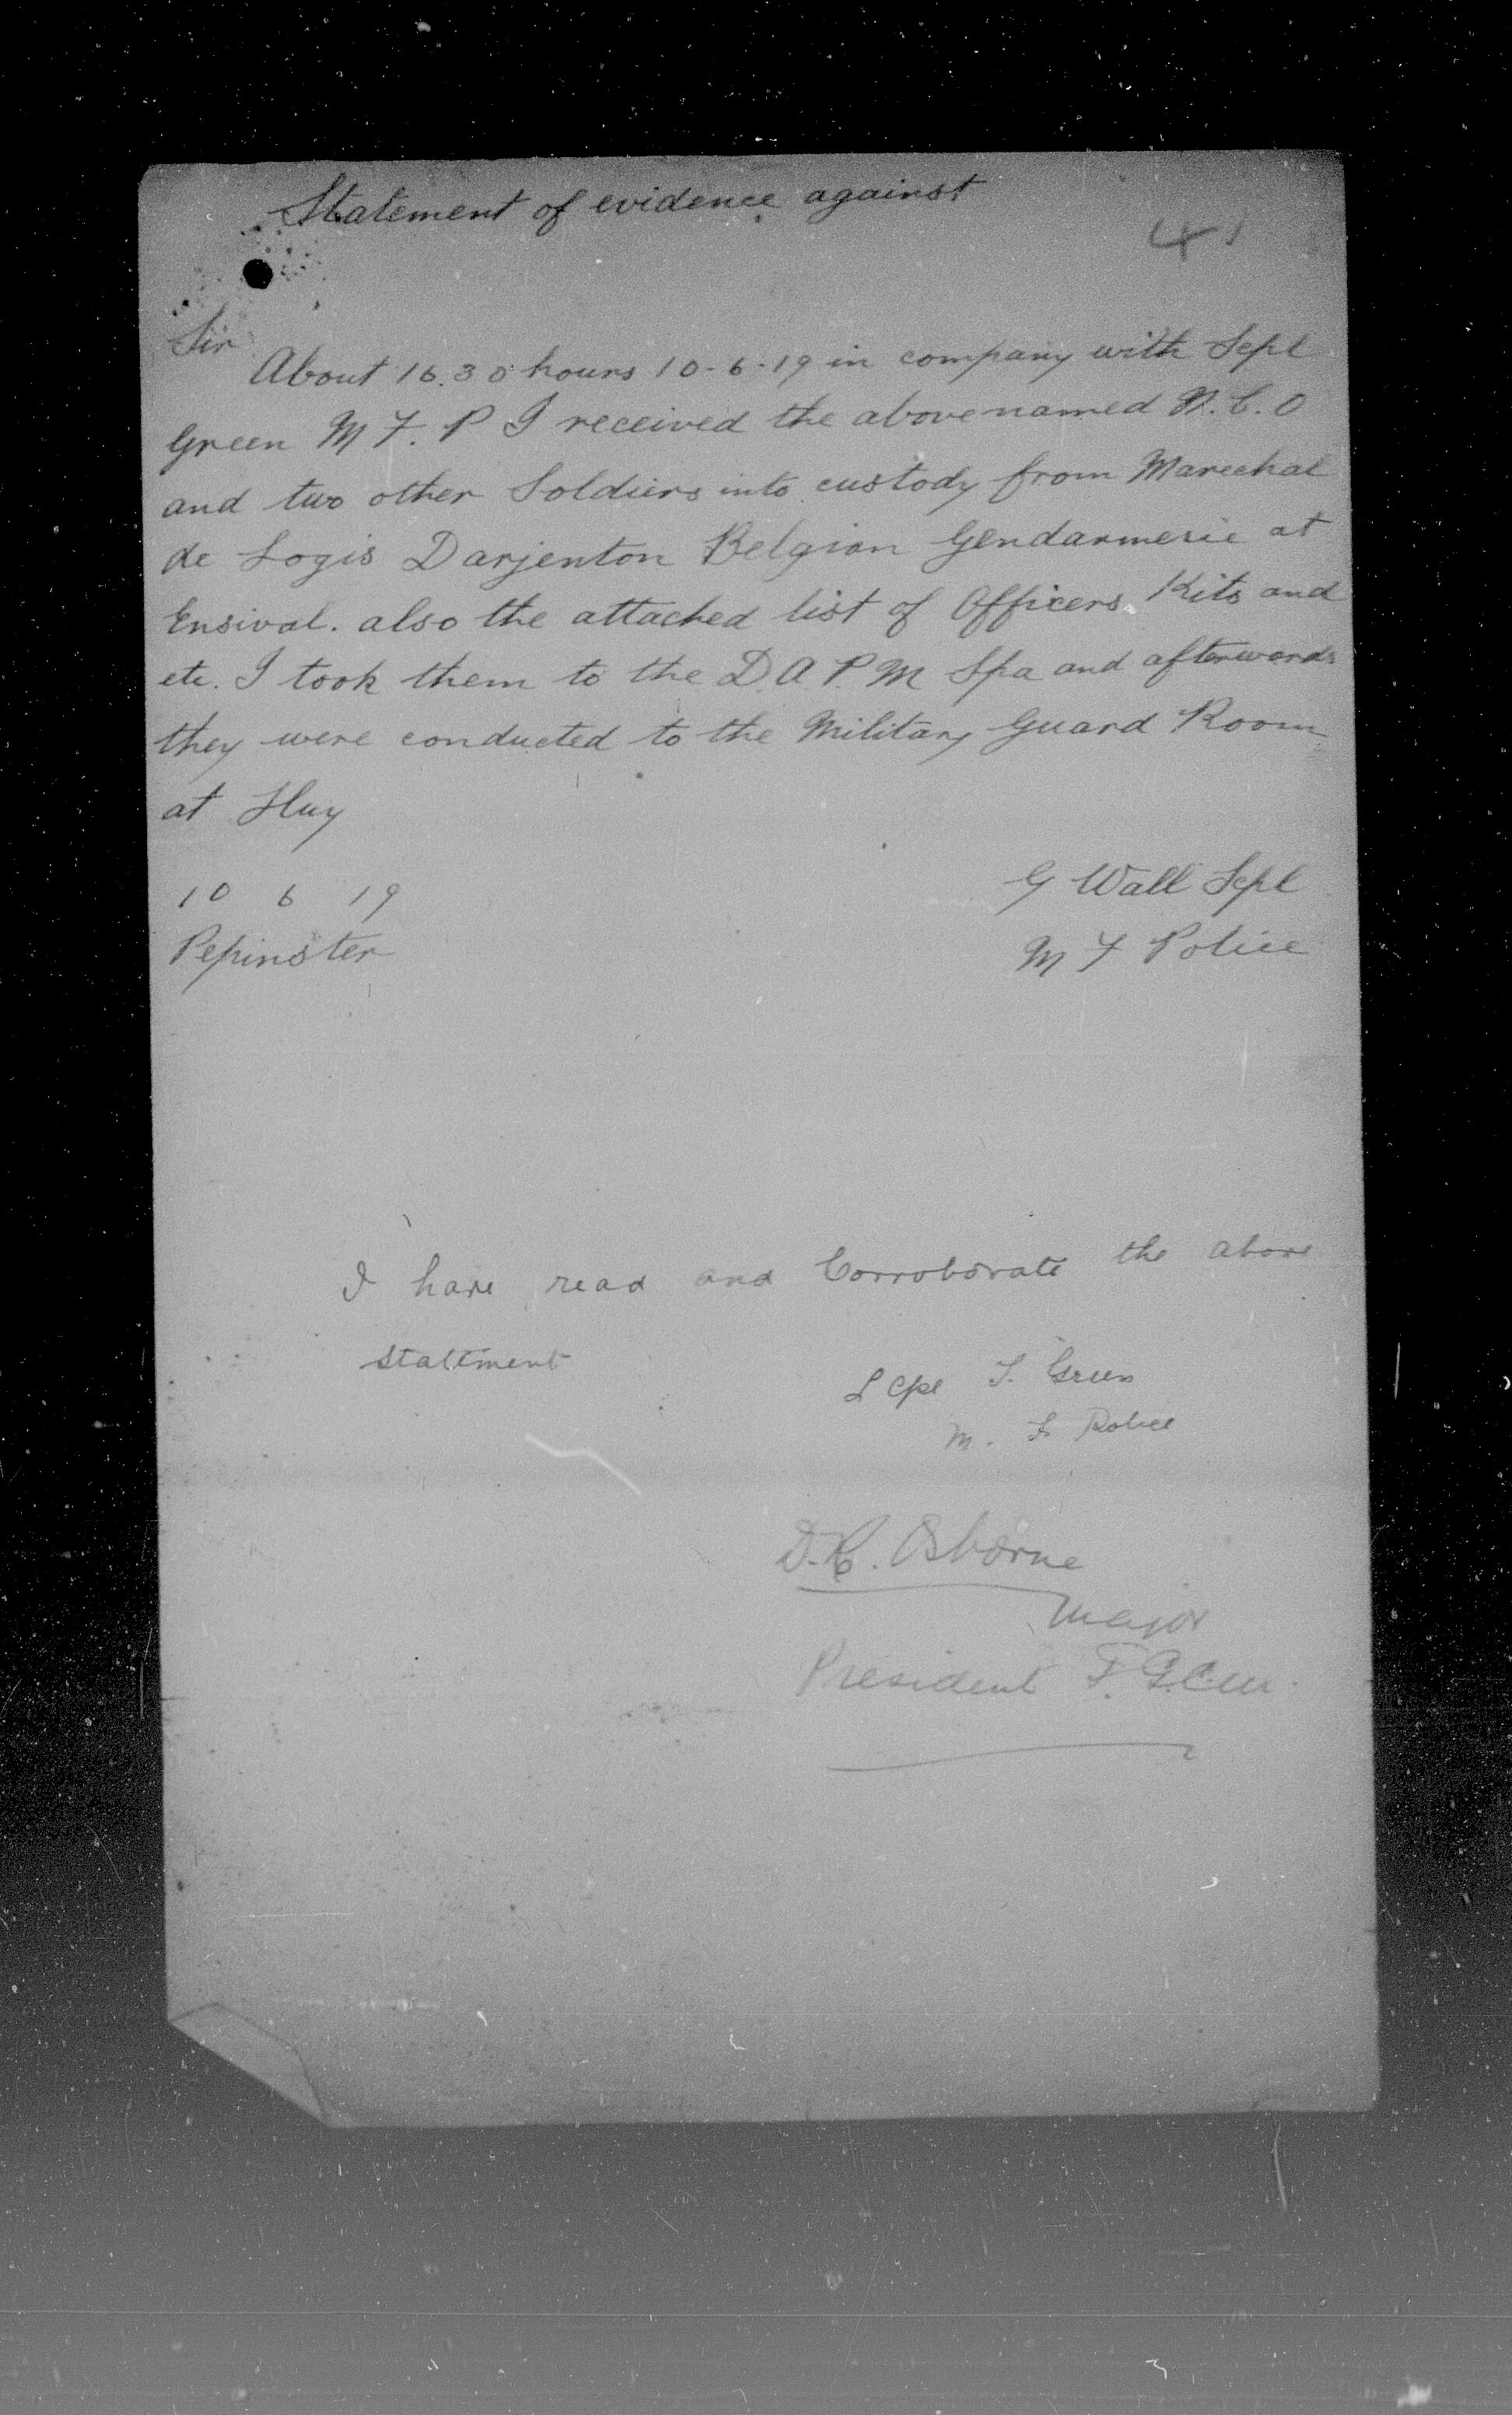 Statement of evidence against
4
Sir
About 16.30 hours 10-6-19 in company with Lcpl
Green M F. P I received the above named N. C. O
and two other Soldiers into custody from Marechal
de Logis Darjenton Belgian Gendarmerie at
Ensival. also the attached list of Officers Kits and
etc. I took them to the D. A. P. M Spa and afterwards
they were conducted to the Military Guard Room
at Huy
10 6 19
G Wall Lcpl
Pepinster
M F Police
I have read and Corroborate the above
statement
L Cpl T. Green
M. F Police
D.R. Osborne
Major
President F.G.C.M.